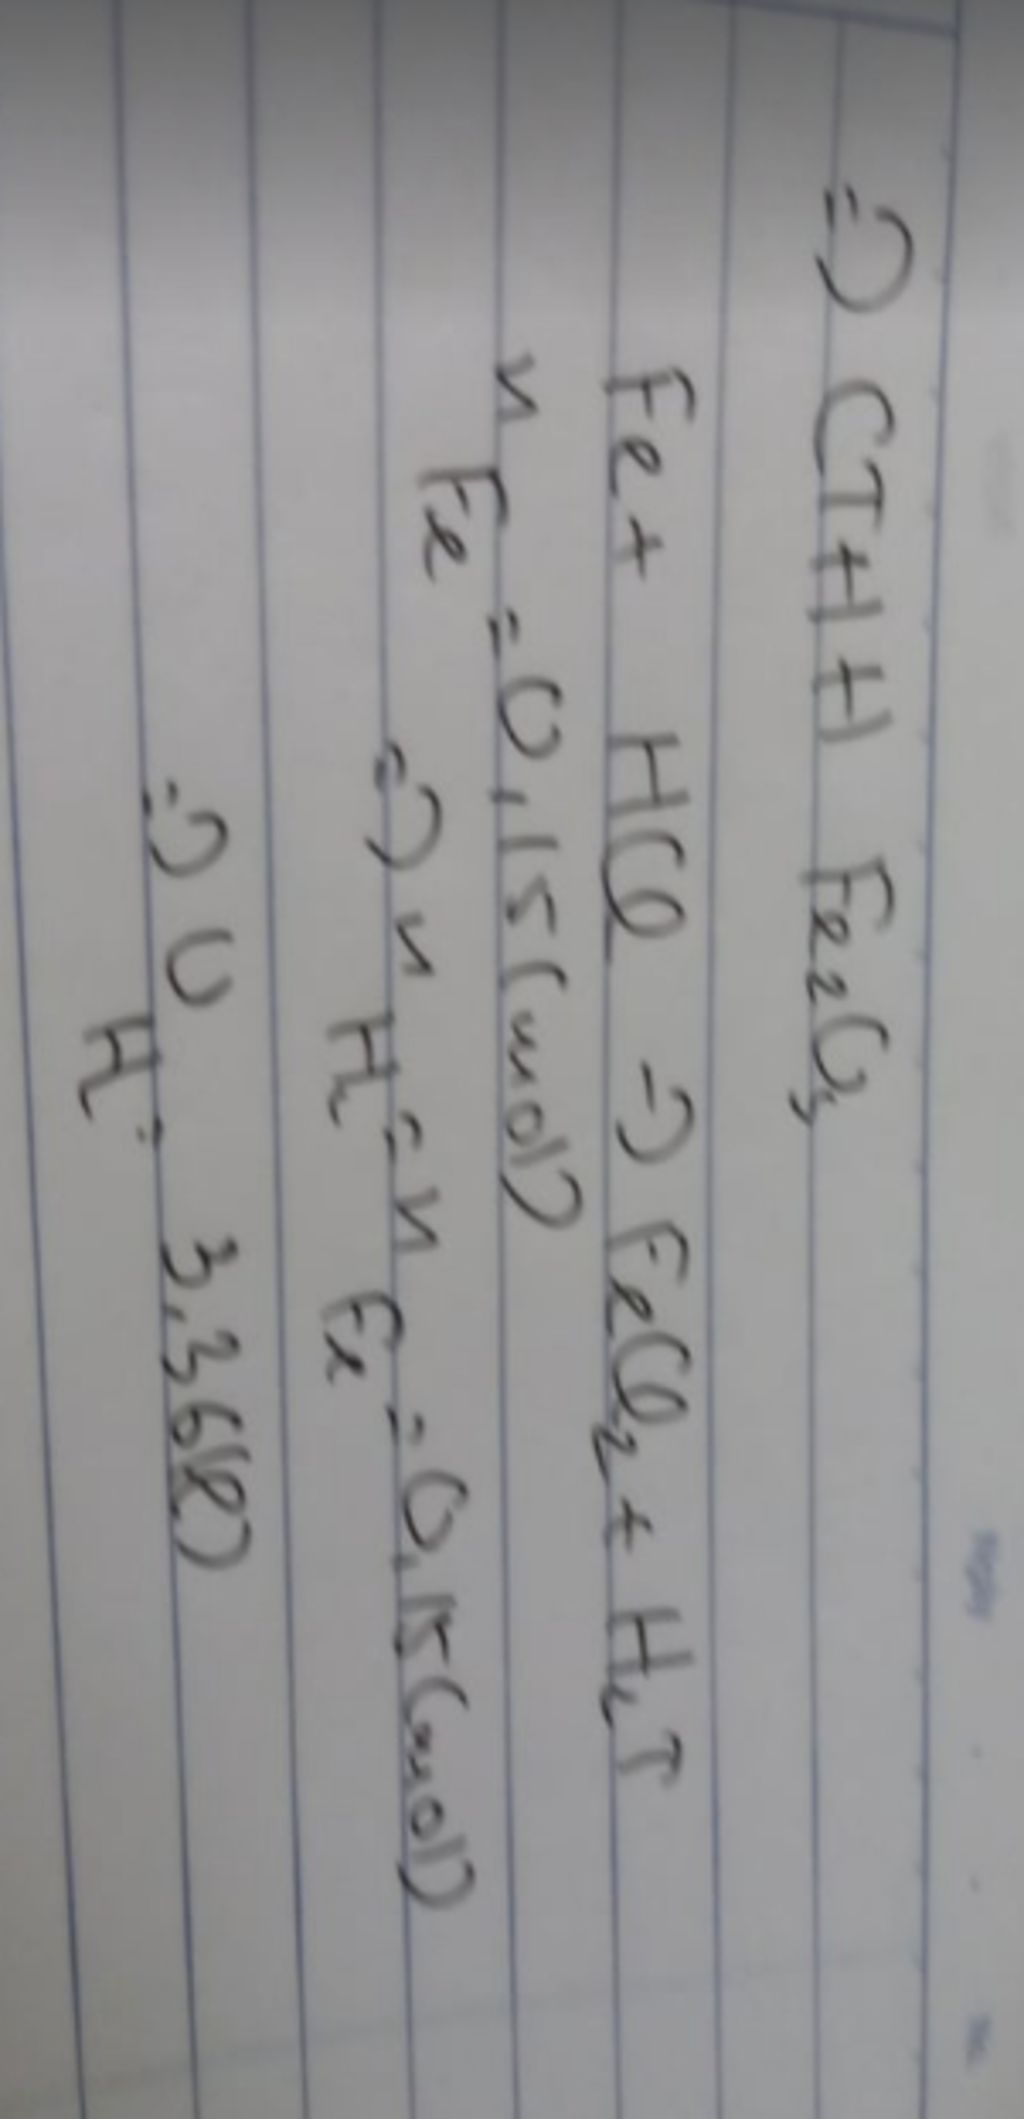 => CTHH Fe2O3
Fe + HCl -> FeCl2 + H2↑
nFe = 0,15 (mol)
=> nH2 = nFe = 0,15 (mol)
=> VH2 = 3,36 (l)